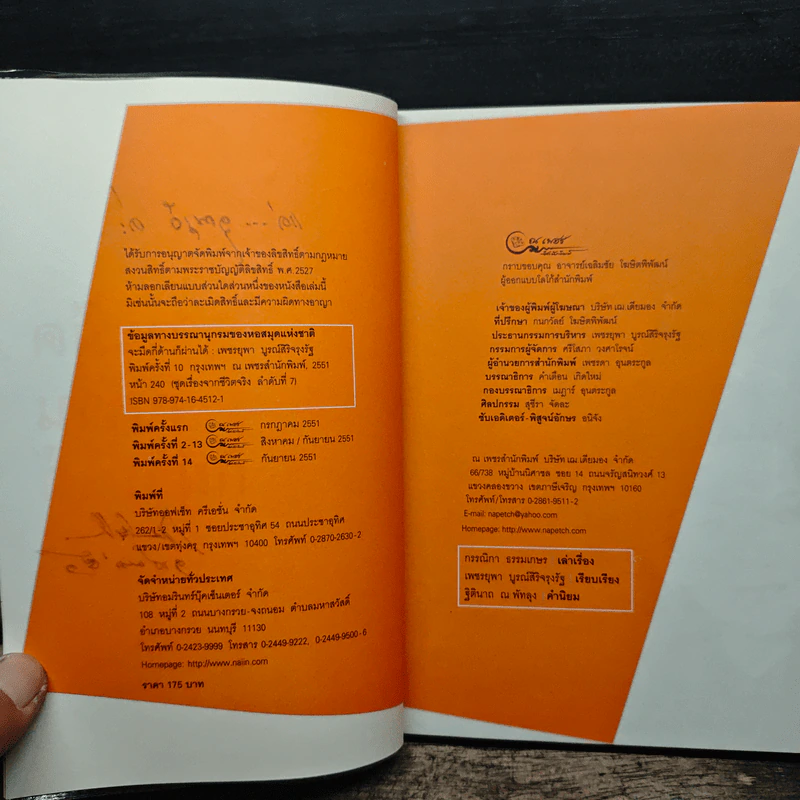 ได้รับการอนุญาตจัดพิมพ์จากเจ้าของลิขสิทธิ์ตามกฎหมาย
สงวนสิทธิ์ตามพระราชบัญญัติลิขสิทธิ์ พ.ศ. 2527
ห้ามลอกเลียนแบบส่วนใดส่วนหนึ่งของหนังสือเล่มนี้
มิเช่นนั้นจะถือว่าละเมิดสิทธิ์และมีความผิดทางอาญา
ข้อมูลทางบรรณานุกรมของหอสมุดแห่งชาติ
จะมืดกี่ด้านก็ผ่านได้ : เพชรยุพา บูรณ์สิริจรุงรัฐ
พิมพ์ครั้งที่ 10 กรุงเทพฯ ณ เพชรสำนักพิมพ์, 2551
หน้า 240 (ชุดเรื่องจากชีวิตจริง ลำดับที่ 7)
ISBN 978-974-16-4512-1
พิมพ์ครั้งแรก ณ เพชร กรกฎาคม 2551
พิมพ์ครั้งที่ 2-13 ณ เพชร สิงหาคม / กันยายน 2551
พิมพ์ครั้งที่ 14 ณ เพชร กันยายน 2551
พิมพ์ที่
บริษัทออฟเซ็ท ครีเอชั่น จำกัด
262/1-2 หมู่ที่ 1 ซอยประชาอุทิศ 54 ถนนประชาอุทิศ
แขวง/เขตทุ่งครุ กรุงเทพฯ 10400 โทรศัพท์ 0-2870-2630-2
จัดจำหน่ายทั่วประเทศ
บริษัทอมรินทร์บุ๊คเซ็นเตอร์ จำกัด
108 หมู่ที่ 2 ถนนบางกรวย-จงถนอม ตำบลมหาสวัสดิ์
อำเภอบางกรวย นนทบุรี 11130
โทรศัพท์ 0-2423-9999 โทรสาร 0-2449-9222, 0-2449-9500-6
Homepage: http://www.naiin.com
ราคา 175 บาท
ณ เพชร
กราบขอบคุณ อาจารย์เฉลิมชัย โฆษิตพิพัฒน์
ผู้ออกแบบโลโก้สำนักพิมพ์
เจ้าของผู้พิมพ์ผู้โฆษณา บริษัท เฌ.เดียมอง จำกัด
ที่ปรึกษา กนกวัลย์ โฆษิตพิพัฒน์
ประธานกรรมการบริหาร เพชรยุพา บูรณ์สิริจรุงรัฐ
กรรมการผู้จัดการ ศรีโสภา วงศาโรจน์
ผู้อำนวยการสำนักพิมพ์ เพชรดา อุนตระกูล
บรรณาธิการ คำเตือน เกิดใหม่
กองบรรณาธิการ เมฎาร์ อุนตระกูล
ศิลปกรรม สุชีรา จัดละ
ซับเอดิเตอร์-พิสูจน์อักษร ธนิจัง
ณ เพชรสำนักพิมพ์ บริษัท เฌ.เดียมอง จำกัด
66/738 หมู่บ้านนิศาชล ซอย 14 ถนนจรัญสนิทวงศ์ 13
แขวงคลองขวาง เขตภาษีเจริญ กรุงเทพฯ 10160
โทรศัพท์/โทรสาร 0-2861-9511-2
E-mail: napetch@yahoo.com
Homepage: http://www.napetch.com
กรรณิกา ธรรมเกษร เล่าเรื่อง
เพชรยุพา บูรณ์สิริจรุงรัฐ เรียบเรียง
ฐิตินาถ ณ พัทลุง คำนิยม